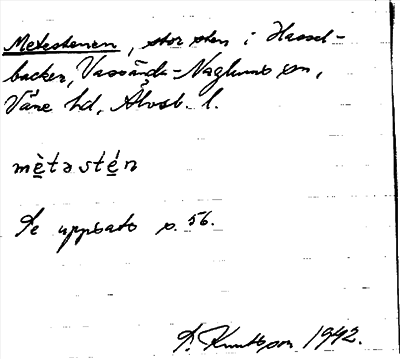 Metestenen, stor sten i Hassel-
backen, Vassända-Naglums sn,
Väne hd, Älvsb. l.
mètastén
Se uppsats s. 56.
S. Knutsson 1942.